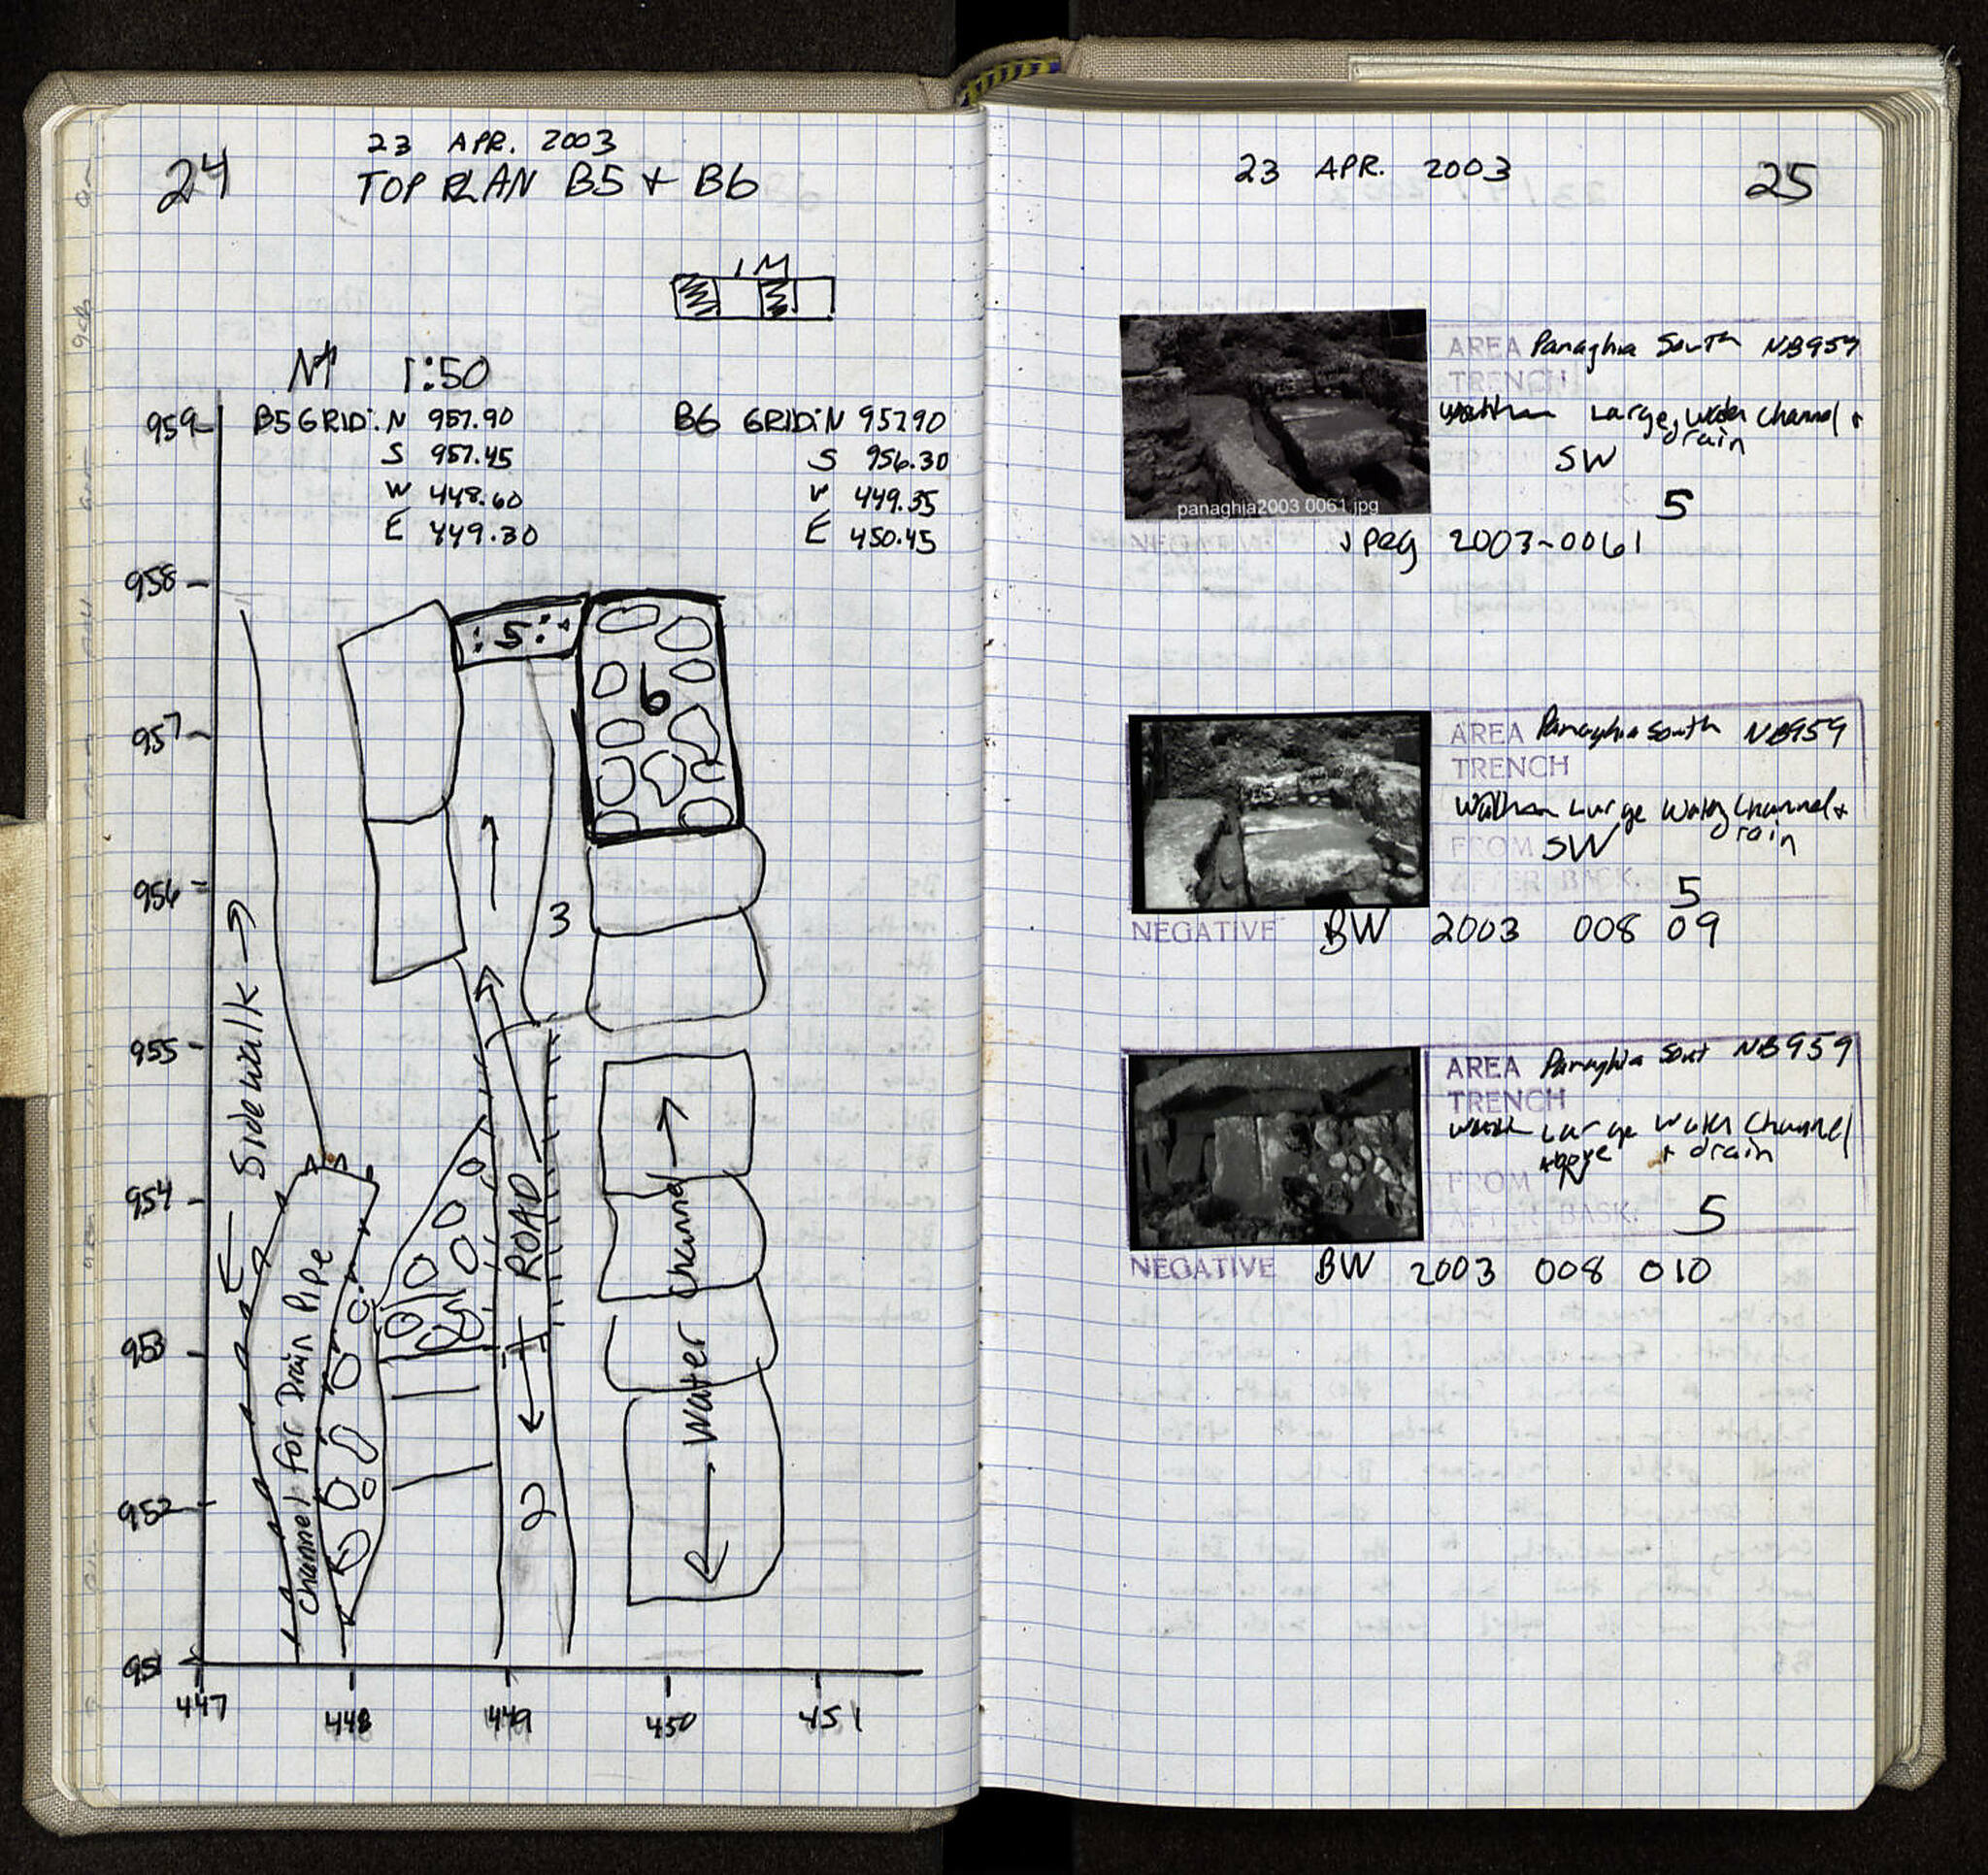 24
23 APR. 2003
TOP PLAN B5 + B6
1M
N↑ 1:50
B5 GRID: N 957.90
S 957.45
W 448.60
E 449.30
B6 GRID: N 957.90
S 956.30
W 449.35
E 450.45
959
958
957
956
955
954
953
952
951
447
448
449
450
451
5
6
3
Sidewalk
ROAD
Channel for Drain Pipe
Water Channel
2
23 APR. 2003
25
AREA Panaghia South NB959
TRENCH
Large water channel +
drain
SW
5
panaghia2003 0061.jpg
Jpeg 2003-0061
AREA Panaghia South NB959
TRENCH
Large Water Channel +
drain
FROM SW
AFTER BASK. 5
NEGATIVE BW 2003 008 09
AREA Panaghia Sout NB959
TRENCH
Large Water Channel
above + drain
FROM N
AFTER BASK. 5
NEGATIVE BW 2003 008 010